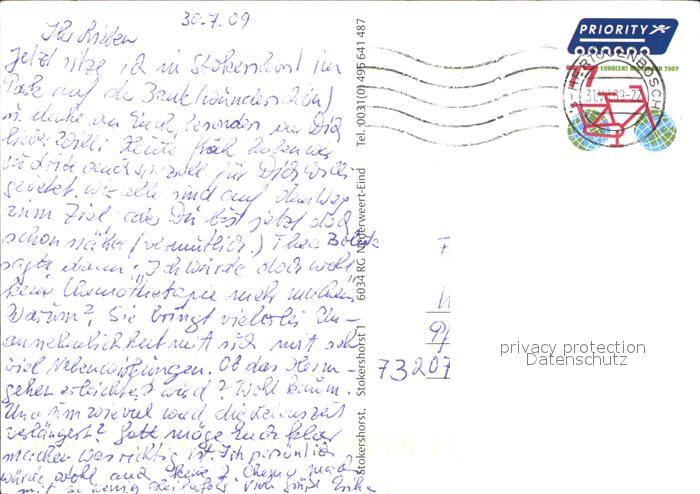 30.7.09
Ihr Lieben
Jetzt sitze ich in Stokershorst im
Park auf der Bank (wunderschön)
u. denke an Euch, besonders an Dich
lieber Willi. Heute früh haben wir
zu dritt auch speziell für Dich
gebetet. Wir alle sind auf dem Weg
zum Ziel aber Du bist jetzt doch
schon näher (vermutlich.) Thea
sagte dann: "Ich würde doch wohl
keine Chemotherapie mehr machen
Warum? Sie bringt vielerlei Un-
annehmlichkeit mit sich mit sehr
viel Nebenwirkungen. Ob das Heim-
gehen erleichtert wird? Wohl kaum.
Und um wieviel wird die Lebenszeit
verlängert? Gott möge Euch klar
machen was richtig ist. Ich persönlich
würde wohl auch keine Chemo mehr
mit Viele Grüße Erika
Stokershorst, Stokershorst 1 6034 RG Nederweert-Eind Tel. 0031(0) 495 641 487
PRIORITY
EUROCENT NEDERLAND 2009
77
'S-HERTOGENBOSCH
73207
privacy protection
Datenschutz